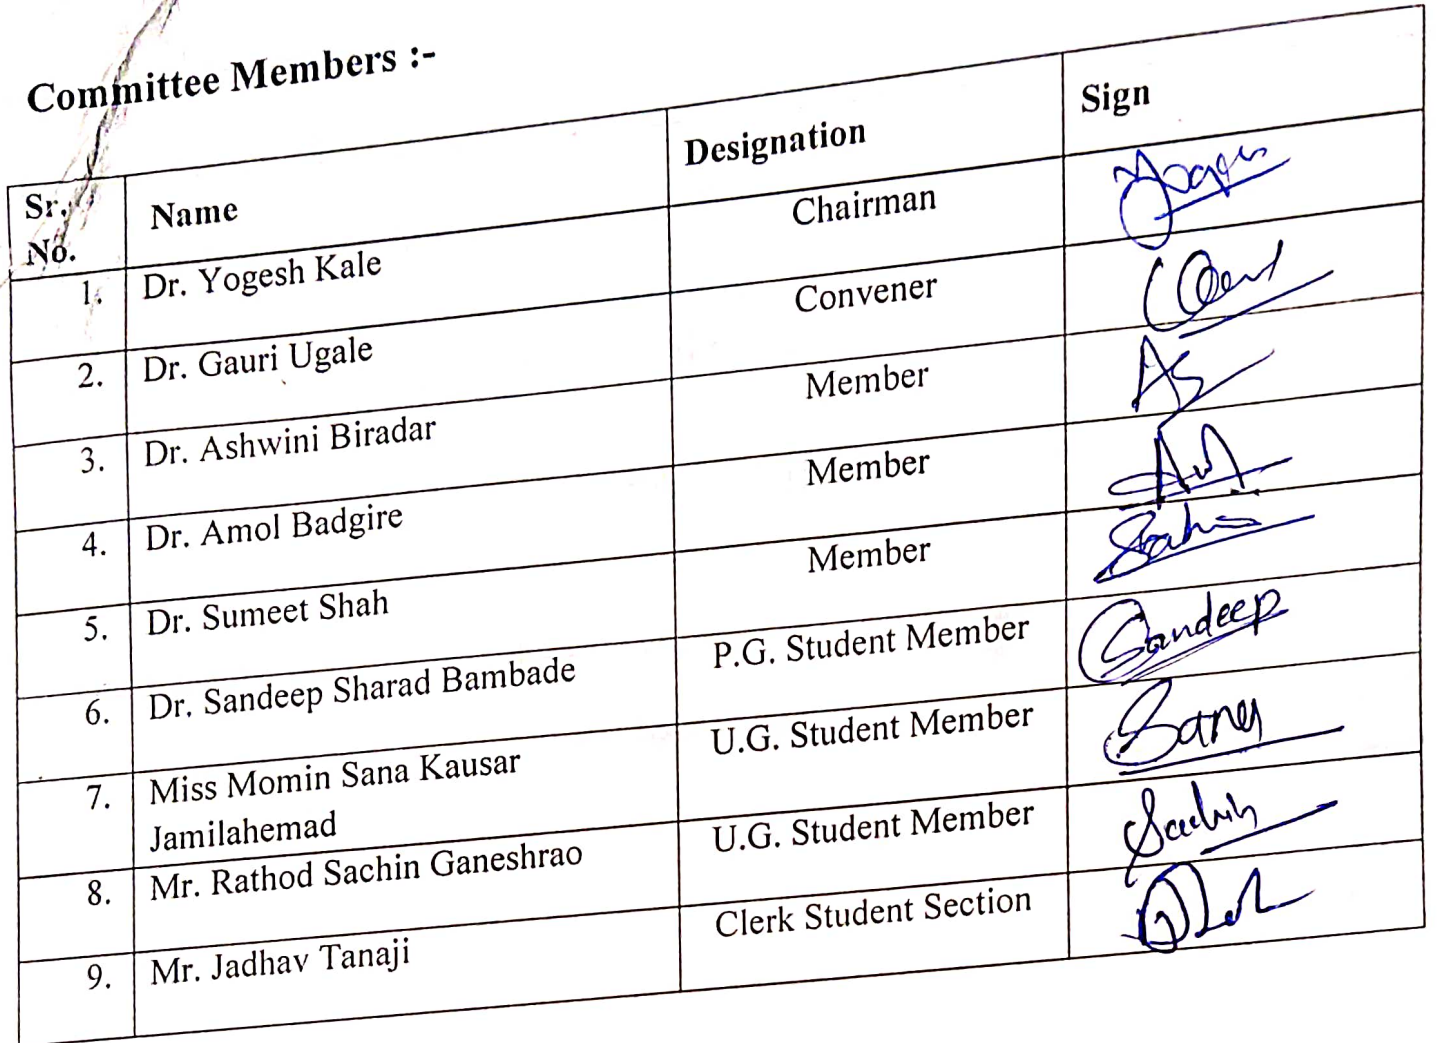 Committee Members :-
Sr. No. Name Designation Sign
1. Dr. Yogesh Kale Chairman Yogesh
2. Dr. Gauri Ugale Convener
3. Dr. Ashwini Biradar Member AS
4. Dr. Amol Badgire Member
5. Dr. Sumeet Shah Member
6. Dr. Sandeep Sharad Bambade P.G. Student Member Sandeep
7. Miss Momin Sana Kausar Jamilahemad U.G. Student Member Sana
8. Mr. Rathod Sachin Ganeshrao U.G. Student Member Sachin
9. Mr. Jadhav Tanaji Clerk Student Section